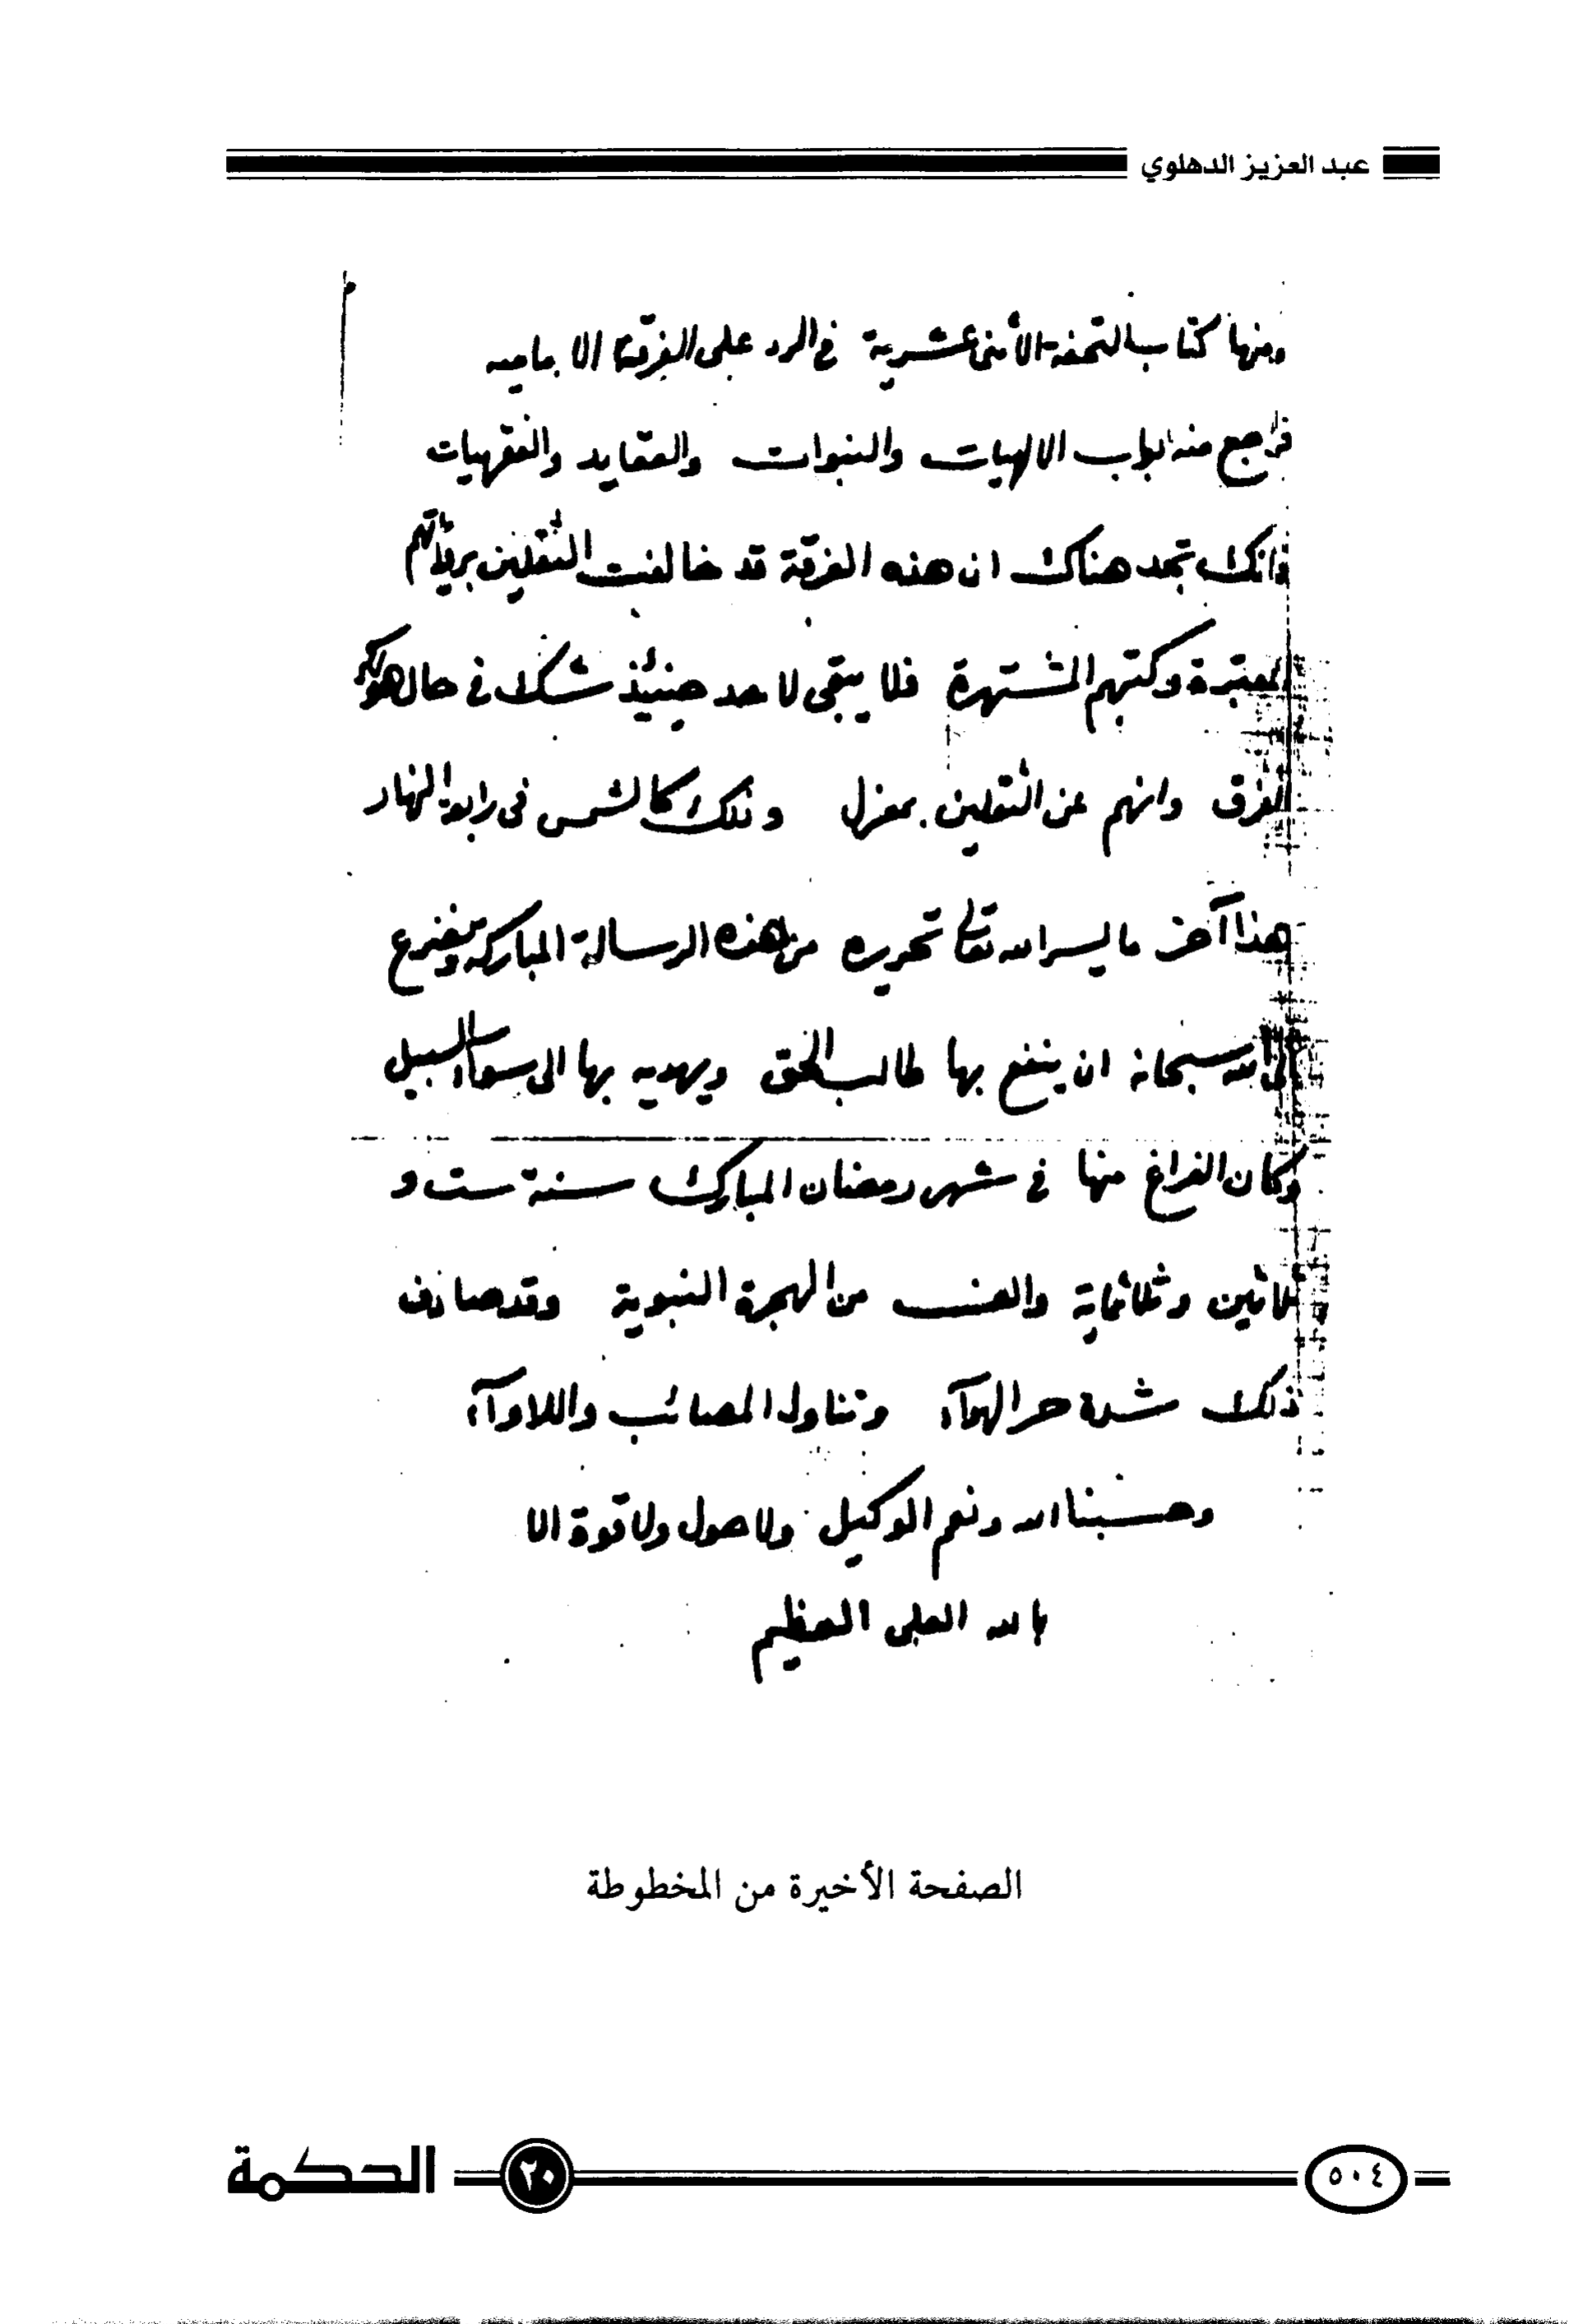 عبد العزيز الدهلوي
ومنها كتاب التحفة الأثنى عشرية في الرد على الفرقة الاماميه
فراجع منه ابواب الالهيات والنبوات والعقايد والفقهيات
فانك تجد هناك ان هذه الفرقة قد خالفت الثقلين
المعتبرة وكتبهم المشتهرة فلا يبقى لاحد حينيئذ شك في حال هؤلاء
الفرق وانهم عن الثقلين بمعزل وذلك كالشمس في رابعة النهار
هذا آخر ما يسر الله تعالى تحريره من هذه الرسالة المباركة
الى الله سبحانه ان ينفع بها طالب الحق ويهديه بها الى سوآء السبيل
وكان الفراغ منها في شهر رمضان المبارك سنة ست و
ثلاثين وثلاثماية والف من الهجرة النبوية وقد صادف
ذلك شدة حر الهوآء وتناول المصائب واللاوآء
وحسبنا الله ونعم الوكيل ولا حول ولا قوة الا
بالله العلى العظيم
الصفحة الأخيرة من المخطوطة
٥٠٤ ٢٠ الحكمة